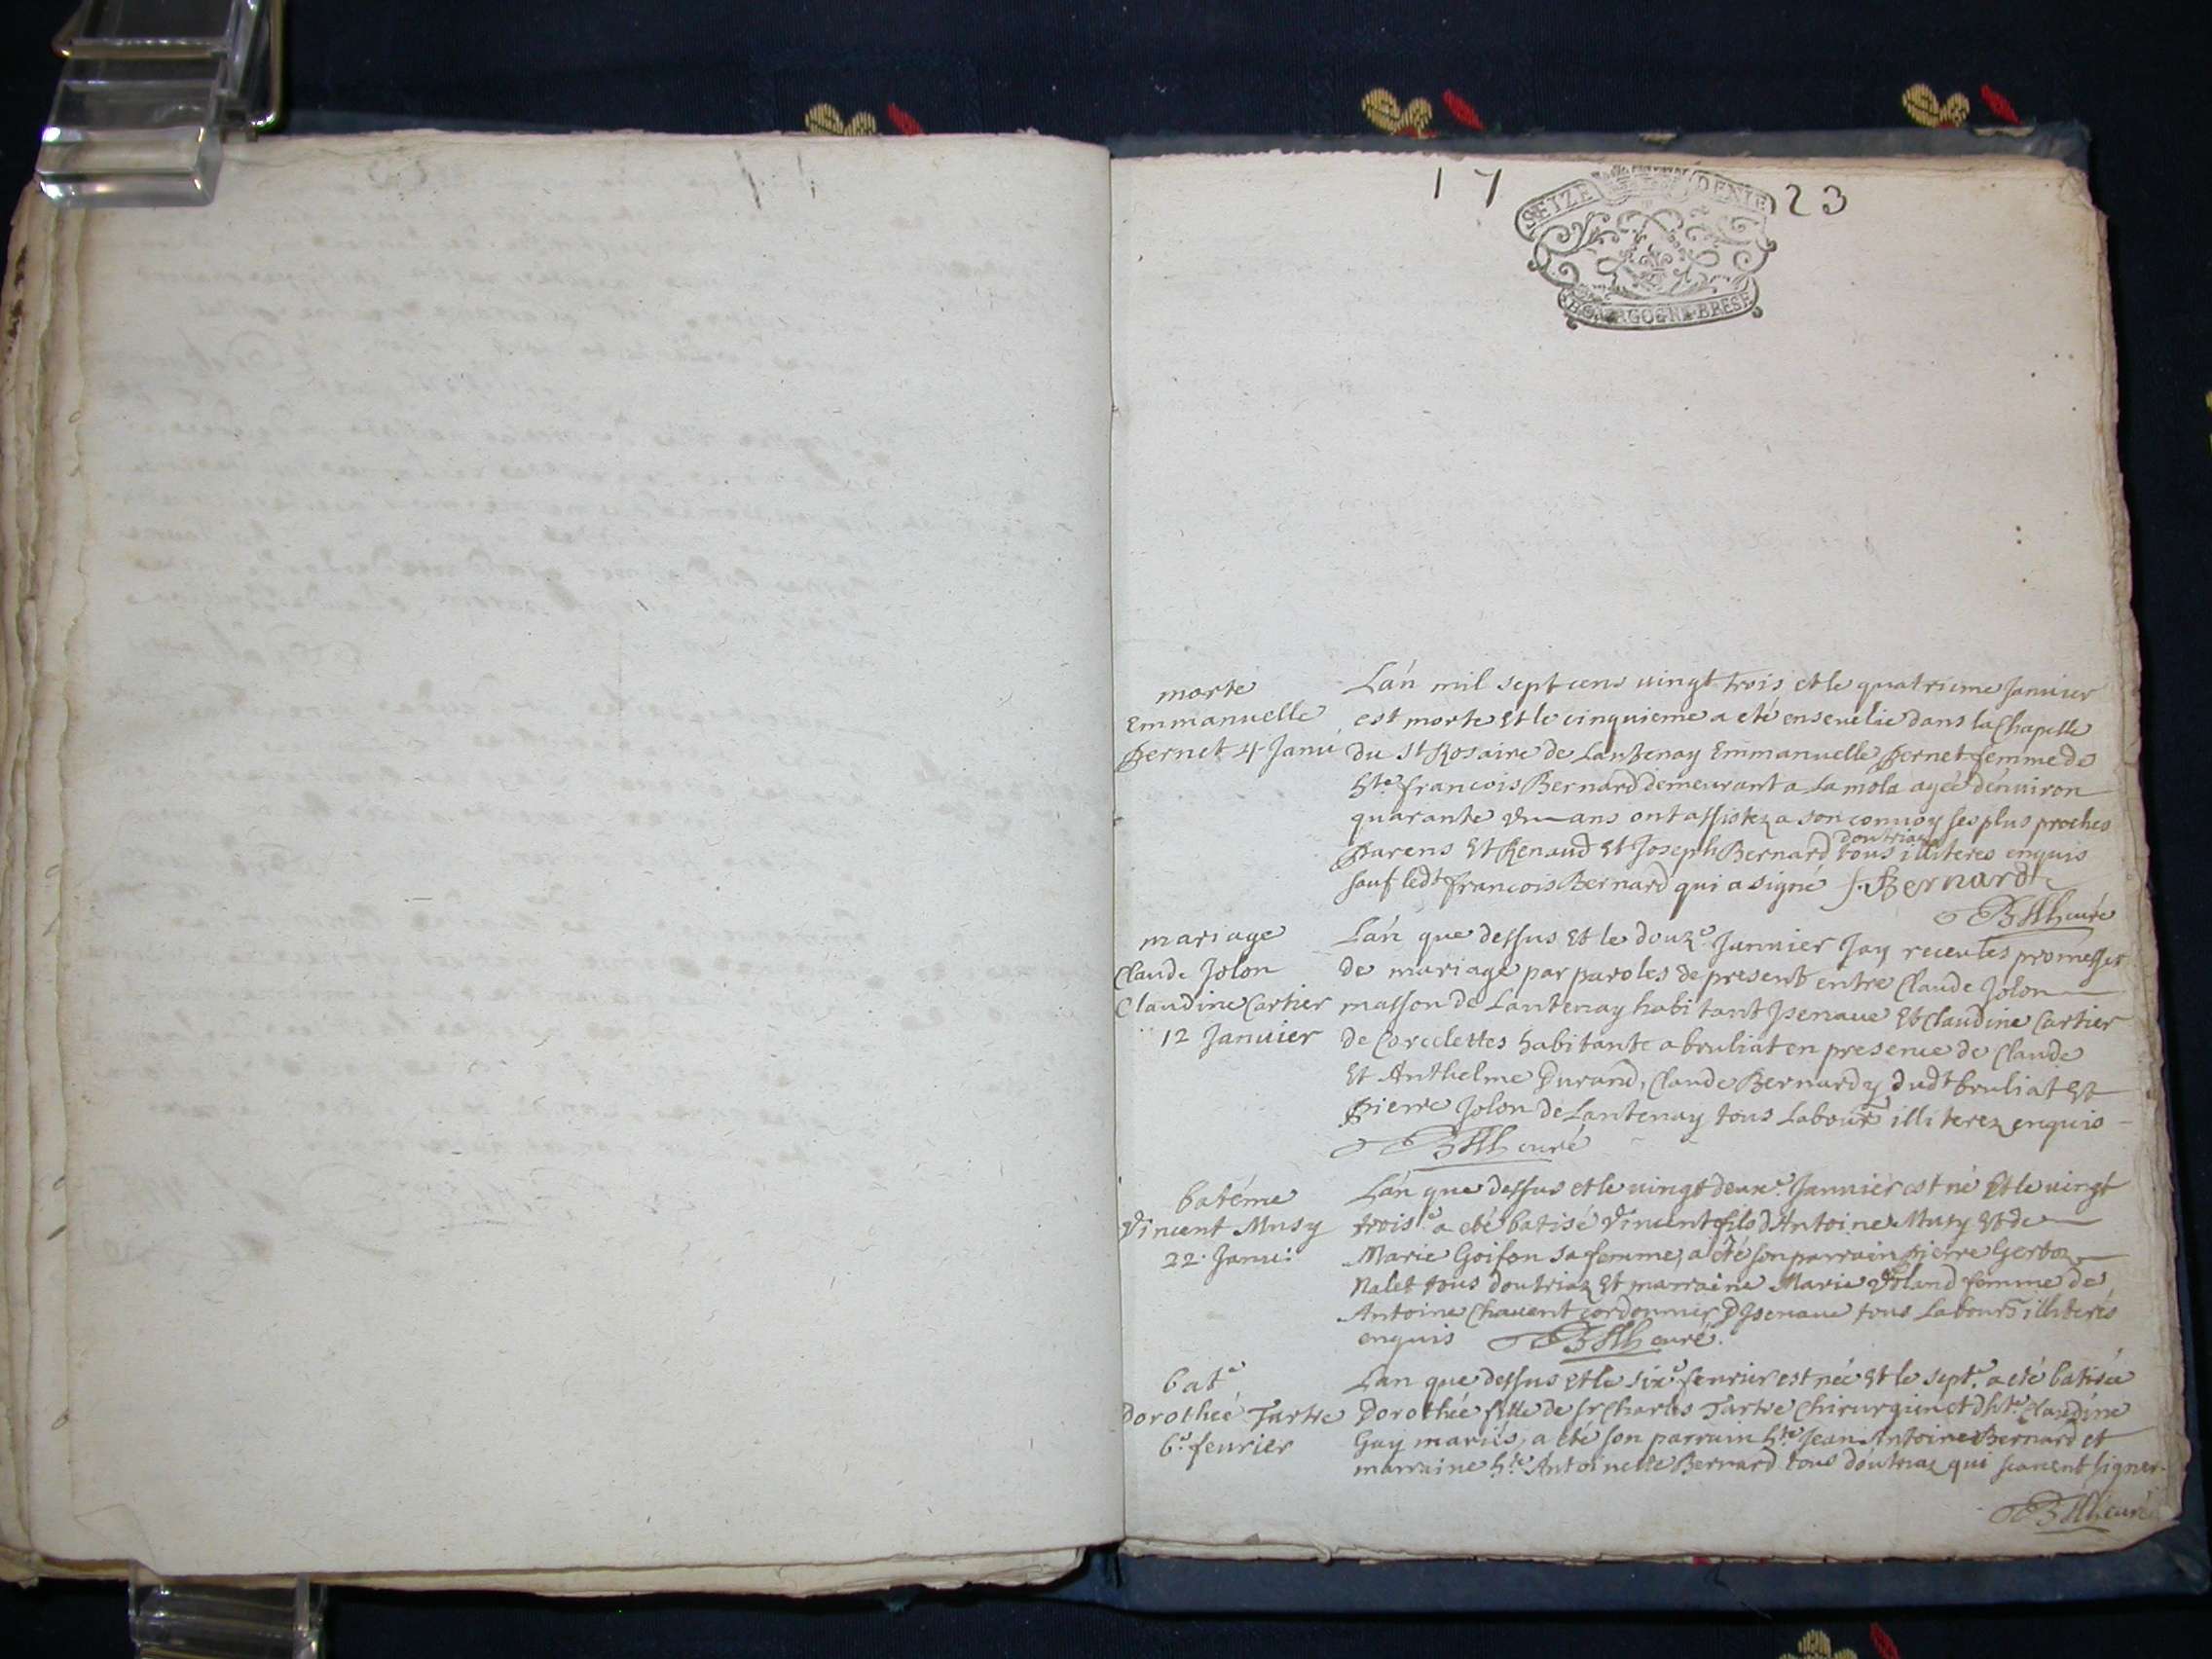 17 23
SEIZE DENIE
BOURGOGNE BRESE
morte
Emmanuelle
Pernet 4 Janu
Lán mil sept cens vingt trois et le quatrieme Januier
est morte Et le cinquieme a eté enseuelie dans la Chapelle
du St Rosaire de Lantenay Emmanuelle Pernet femme de
hte francois Bernard demeurant a la mola ageé dénuiron
quarante ans ont assistez a son conuoy ses plus proches
doutriaz
Parens Et Renaud Et Joseph Bernard tous illiteres enquis
sauf ledt francois Bernard qui a signé f. Bernard
curé
mariage
Claude Jolon
Claudine Cartier
12 Januier
Lán que dessus Et le douze Januier Jay receu les promesses
de mariage par paroles de present entre Claude Jolon
masson de Lantenay habitant Jsenaue Et Claudine Cartier
de Corcelettes habitante a bruliat en presence de Claude
Et Anthelme Durand, Claude Bernard dudt bruliat Et
pierre Jolon de Lantenay tous Labour illiterez enquis
curé
batéme
Vincent Musy
22 Janu:
Lán que dessus et le vingt deuxe Januier est né Et le vingt
troise a eté batisé Vincent fils dAntoine Musy Et de
Marie Goifon sa femme, a eté son parrain pierre
Nalet tous doutriaz Et marraine Marie femme de
Antoine Chauent cordonnier DJsenaue tous Labours illiterés
enquis curé.
bate
Dorothée Tartre
6e feurier
Lan que dessus Et le sixe feurier est née Et le septe a eté batisée
Dorothée fille de sr Charles Tartre Chirurgien et dhte Claudine
Guy mariés, a eté son parrain hte Jean Antoine Bernard et
marraine hte Antoinette Bernard tous doutriaz qui scauent signer.
curé